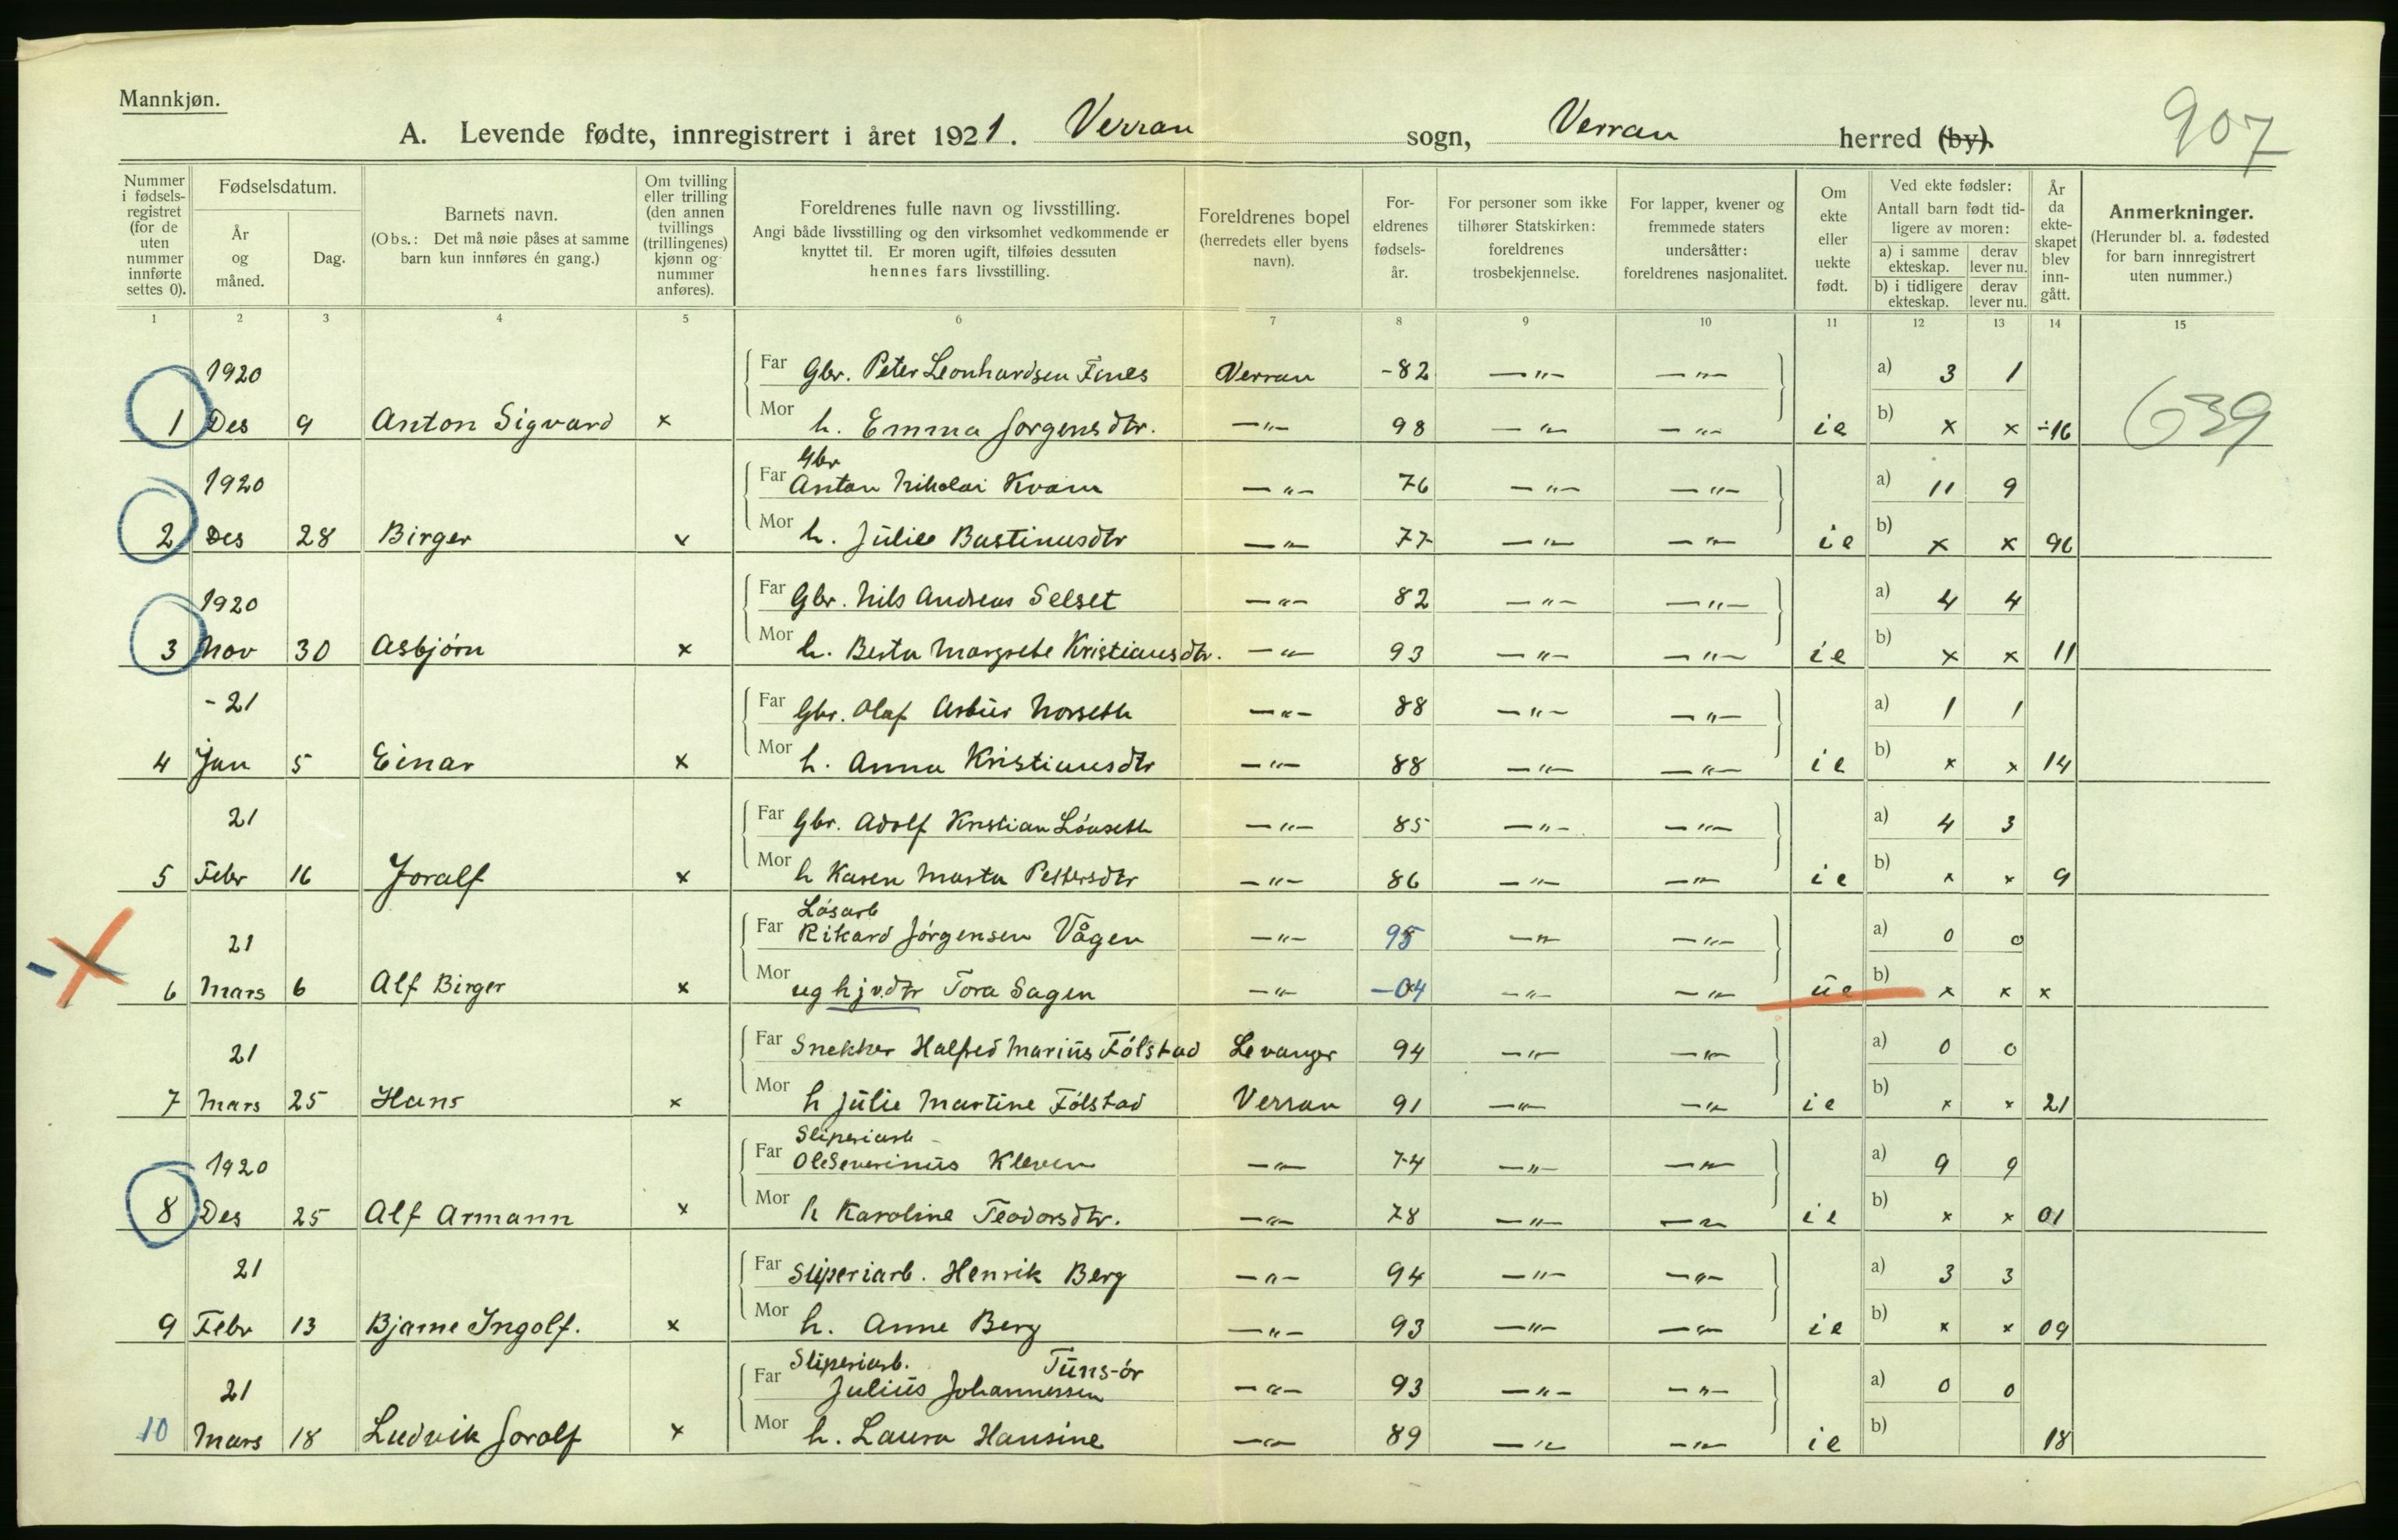 Mannkjøn.
907
A. Levende fødte, innregistrert i året 1921. Verran sogn, Verran herred (by).
Nummer i fødsels-registret (for de uten nummer innførte settes 0).
Fødselsdatum.
År og måned.
Dag.
Barnets navn.
(Obs.: Det må nøie påses at samme barn kun innføres én gang.)
Om tvilling eller trilling (den annen tvillings (trillingenes) kjønn og nummer anføres).
Foreldrenes fulle navn og livsstilling.
Angi både livsstilling og den virksomhet vedkommende er knyttet til. Er moren ugift, tilføies dessuten hennes fars livsstilling.
Foreldrenes bopel (herredets eller byens navn).
For-eldrenes fødsels-år.
For personer som ikke tilhører Statskirken: foreldrenes trosbekjennelse.
For lapper, kvener og fremmede staters undersåtter: foreldrenes nasjonalitet.
Om ekte eller uekte født.
Ved ekte fødsler: Antall barn født tid-ligere av moren:
a) i samme ekteskap. derav lever nu.
b) i tidligere ekteskap. derav lever nu.
År da ekte-skapet blev inn-gått.
Anmerkninger.
(Herunder bl. a. fødested for barn innregistrert uten nummer.)
1 2 3 4 5 6 7 8 9 10 11 12 13 14 15
1920 Far Gbr. Peter Leonhardsen Fines Verran -82 —"— —"— a) 3 1
1 Des 9 Anton Sigvard x Mor h. Emma Jørgensdtr. —"— 98 —"— —"— ie b) x x -16 639
Gbr
1920 Far Anton Nikolai Kvam —"— 76 —"— —"— a) 11 9
2 Des 28 Birger x Mor h. Julie Bastinusdtr —"— 77 —"— —"— ie b) x x 96
1920 Far Gbr. Nils Andreas Selset —"— 82 —"— —"— a) 4 4
3 Nov 30 Asbjørn x Mor h. Berta Margrete Kristiansdtr. —"— 93 —"— —"— ie b) x x 11
-21 Far Gbr. Olaf Artur Norseth —"— 88 —"— —"— a) 1 1
4 Jan 5 Einar x Mor h. Anna Kristiansdtr —"— 88 —"— —"— ie b) x x 14
21 Far Gbr. Adolf Kristian Lónseth —"— 85 —"— —"— a) 4 3
5 Febr 16 Joralf x Mor h Karen Marta Pettersdtr —"— 86 —"— —"— ie b) x x 9
Lósarb
21 Far Rikard Jórgensen Vågen —"— 95 —"— —"— a) 0 0
6 Mars 6 Alf Birger x Mor ug hjv.dtr Tora Sagen —"— -04 —"— —"— ue b) x x x
21 Far Snekker Halfred Marius Fólstad Levanger 94 —"— —"— a) 0 0
7 Mars 25 Hans x Mor h Julie Martine Fólstad Verran 91 —"— —"— ie b) x x 21
Sliperiarb
1920 Far Ole Severinus Kleven —"— 74 —"— —"— a) 9 9
8 Des 25 Alf Armann x Mor h Karoline Teodorsdtr. —"— 78 —"— —"— ie b) x x 01
21 Far Sliperiarb. Henrik Berg —"— 94 —"— —"— a) 3 3
9 Febr 13 Bjarne Ingolf. x Mor h. Anne Berg —"— 93 —"— —"— ie b) x x 09
Sliperiarb. Tuns-ór
21 Far Julius Johannessen —"— 93 —"— —"— a) 0 0
10 Mars 18 Ludvik Joralf x Mor h. Laura Hansine —"— 89 —"— —"— ie b) 18